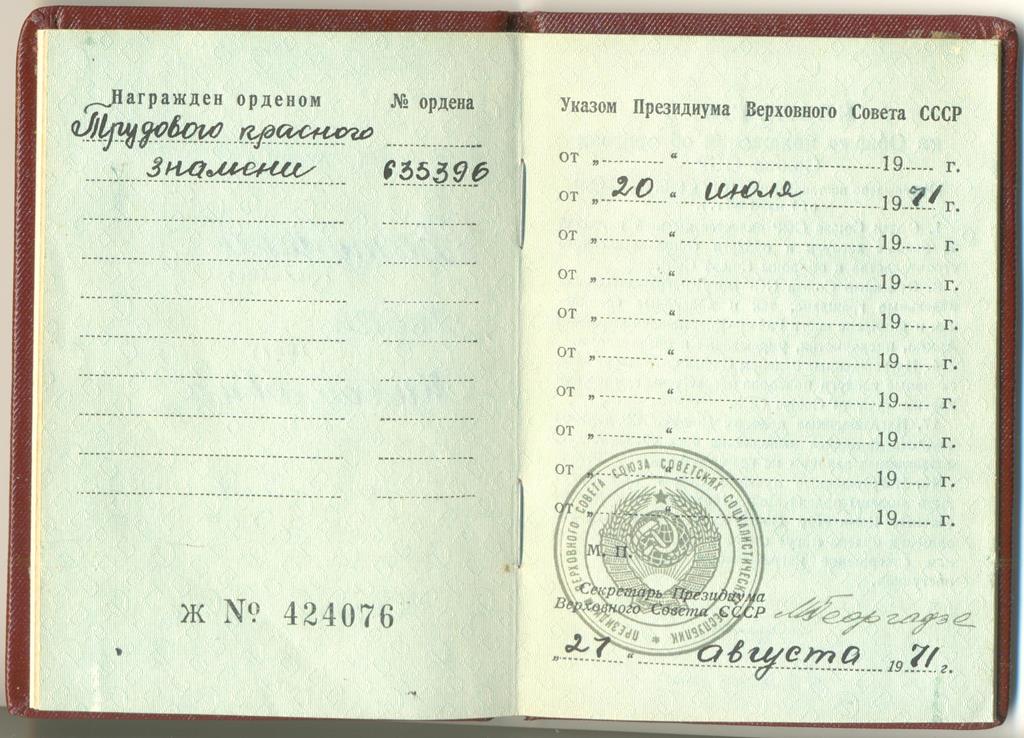 Награжден орденом
№ ордена
Трудового красного
знамени
635396
Ж № 424076
Указом Президиума Верховного Совета СССР
от „ “ 19 г.
от „ 20 “ июля 1971 г.
от „ “ 19 г.
от „ “ 19 г.
от „ “ 19 г.
от „ “ 19 г.
от „ “ 19 г.
от „ “ 19 г.
от „ “ 19 г.
от „ “ 19 г.
ПРЕЗИДИУМ ВЕРХОВНОГО СОВЕТА СОЮЗА СОВЕТСКИХ СОЦИАЛИСТИЧЕСКИХ РЕСПУБЛИК
М. П.
Секретарь Президиума
Верховного Совета СССР
МГеоргадзе
„ 21 “ августа 1971 г.